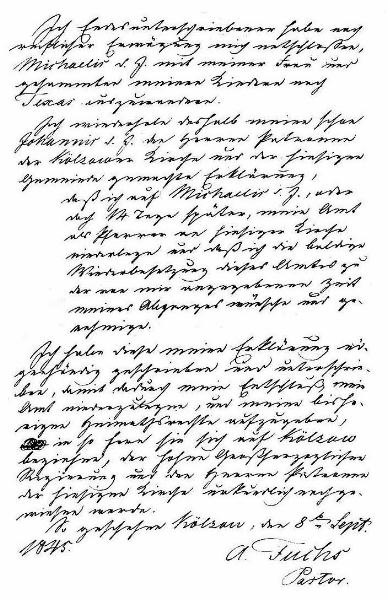 Ich Endesunterschriebener habe nach
reiflicher Erwägung mich entschlossen,
Michaelis d. J. mit meiner Frau und
gesammten meinen Kindern nach
Texas auszuwandern.
Ich wiederhole deshalb meine schon
Johannis d. J. den Herren Patronen
der Kölzower Kirche und der hiesigen
Gemeinde gemachte Erklärung,
daß ich auf Michaelis d. J., oder
doch 14 Tage später, mein Amt
als Pfarrer an hiesiger Kirche
niederlege und daß ich die baldige
Wiederbesetzung dieses Amtes zu
der von mir angegebenen Zeit
meines Abganges wünsche und ge-
nehmige.
Ich habe diese meine Erklärung ei-
genhändig geschrieben und unterschrie-
ben, damit dadurch mein Entschluß, mein
Amt niederzulegen, und meine bishe-
rigen Heimathsrechte aufzugeben,
in so fern sie sich auf Kölzow
beziehen, der hohen Großherzoglichen
Regierung und den Herren Patronen
der hiesigen Kirche urkundlich nachge-
wiesen werde.
So geschehen Kölzow, den 8ten Sept.
1845.
A. Fuchs
Pastor.